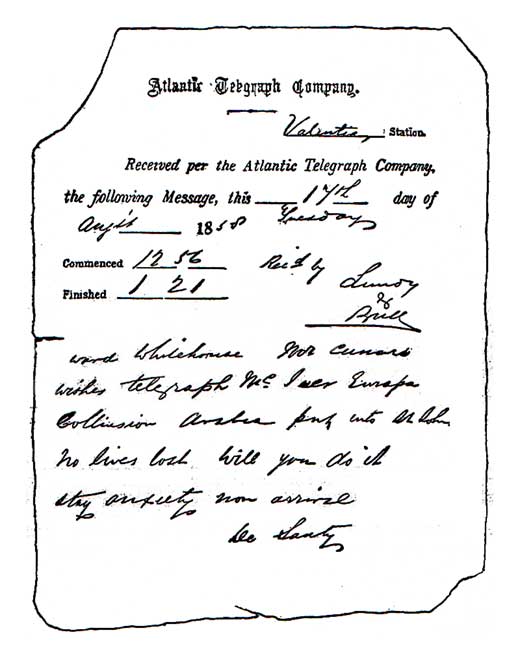 Atlantic Telegraph Company.
Valentia Station.
Received per the Atlantic Telegraph Company,
the following Message, this 17th day of
Augst 1858 Tuesday
Commenced 12 56 Rec'd by
Finished 1 21 Lundy
&
Bull
ward Whitehouse Mr Cunard
wishes telegraph Mc Iver Europa
Collision Arabia put into St John
no lives lost will you do it
stay anxiety non arrival
De Sauty